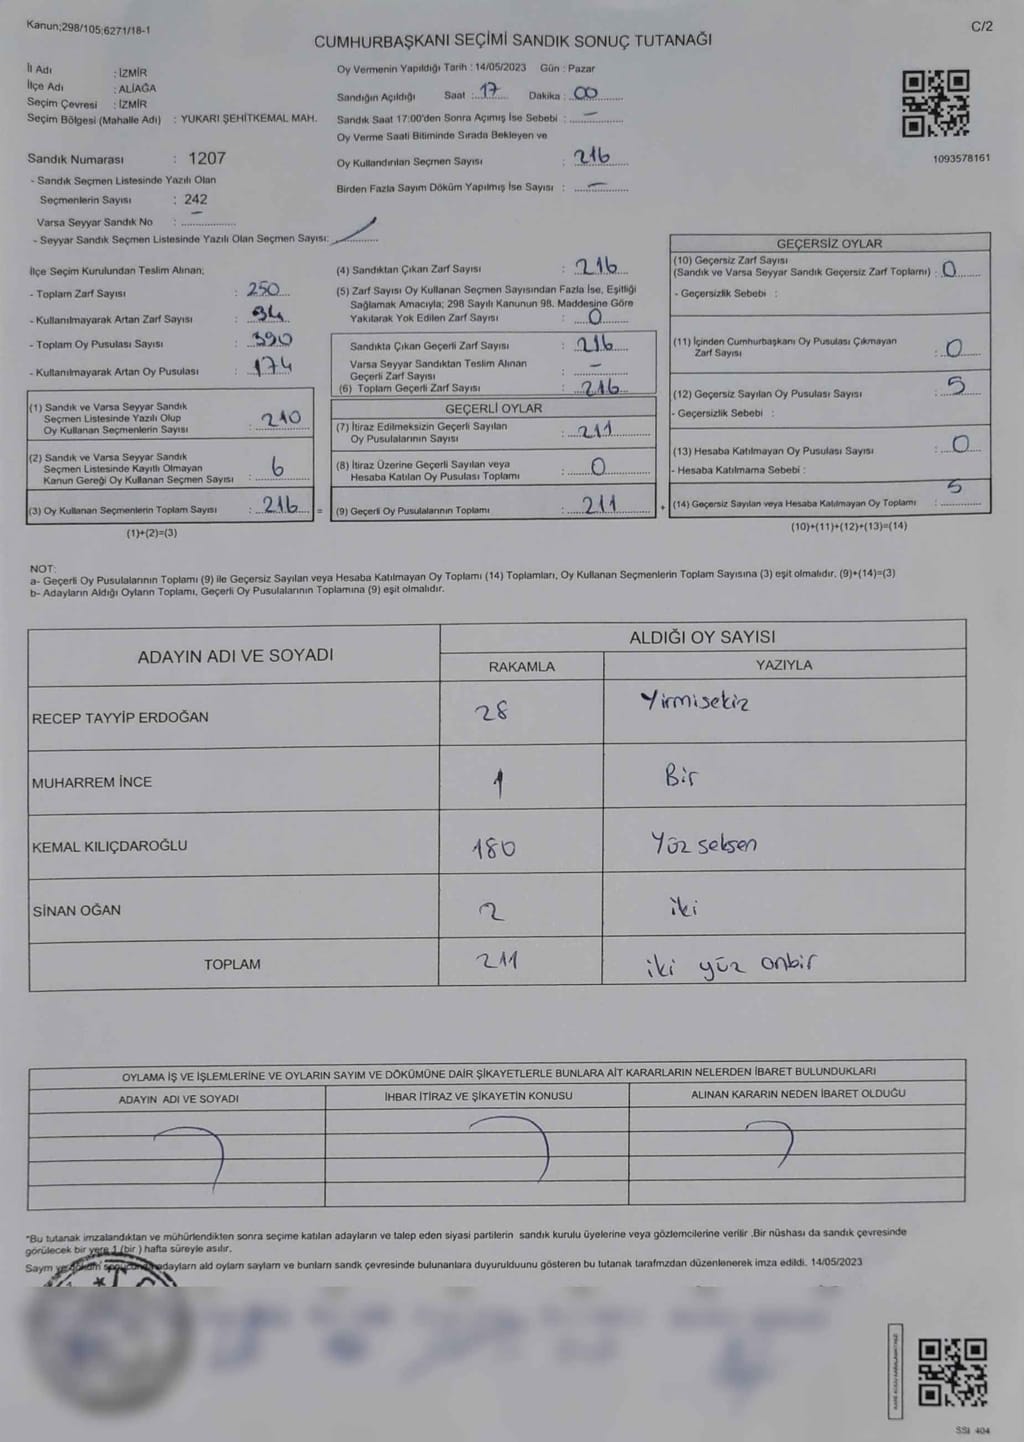 Kanun;298/105;6271/18-1
C/2
CUMHURBAŞKANI SEÇİMİ SANDIK SONUÇ TUTANAĞI
İl Adı : İZMİR
İlçe Adı : ALİAĞA
Seçim Çevresi : İZMİR
Seçim Bölgesi (Mahalle Adı) : YUKARI ŞEHİTKEMAL MAH.
Sandık Numarası : 1207
- Sandık Seçmen Listesinde Yazılı Olan
Seçmenlerin Sayısı : 242
Varsa Seyyar Sandık No : –
- Seyyar Sandık Seçmen Listesinde Yazılı Olan Seçmen Sayısı:
Oy Vermenin Yapıldığı Tarih : 14/05/2023 Gün : Pazar
Sandığın Açıldığı Saat : 17 Dakika : 00
Sandık Saat 17:00'den Sonra Açımış İse Sebebi : –
Oy Verme Saati Bitiminde Sırada Bekleyen ve
Oy Kullandırılan Seçmen Sayısı : 216
Birden Fazla Sayım Döküm Yapılmış İse Sayısı : –
1093578161
İlçe Seçim Kurulundan Teslim Alınan;
- Toplam Zarf Sayısı : 250
- Kullanılmayarak Artan Zarf Sayısı : 34
- Toplam Oy Pusulası Sayısı : 390
- Kullanılmayarak Artan Oy Pusulası : 174
(1) Sandık ve Varsa Seyyar Sandık
Seçmen Listesinde Yazılı Olup
Oy Kullanan Seçmenlerin Sayısı : 210
(2) Sandık ve Varsa Seyyar Sandık
Seçmen Listesinde Kayıtlı Olmayan
Kanun Gereği Oy Kullanan Seçmen Sayısı : 6
(3) Oy Kullanan Seçmenlerin Toplam Sayısı : 216 =
(1)+(2)=(3)
(4) Sandıktan Çıkan Zarf Sayısı : 216
(5) Zarf Sayısı Oy Kullanan Seçmen Sayısından Fazla İse, Eşitliği
Sağlamak Amacıyla; 298 Sayılı Kanunun 98. Maddesine Göre
Yakılarak Yok Edilen Zarf Sayısı : 0
Sandıkta Çıkan Geçerli Zarf Sayısı : 216
Varsa Seyyar Sandıktan Teslim Alınan
Geçerli Zarf Sayısı : –
(6) Toplam Geçerli Zarf Sayısı : 216
GEÇERLİ OYLAR
(7) İtiraz Edilmeksizin Geçerli Sayılan
Oy Pusulalarının Sayısı : 211
(8) İtiraz Üzerine Geçerli Sayılan veya
Hesaba Katılan Oy Pusulası Toplamı : 0
(9) Geçerli Oy Pusulalarının Toplamı : 211 +
GEÇERSİZ OYLAR
(10) Geçersiz Zarf Sayısı
(Sandık ve Varsa Seyyar Sandık Geçersiz Zarf Toplamı) : 0
- Geçersizlik Sebebi :
(11) İçinden Cumhurbaşkanı Oy Pusulası Çıkmayan
Zarf Sayısı : 0
(12) Geçersiz Sayılan Oy Pusulası Sayısı : 5
- Geçersizlik Sebebi :
(13) Hesaba Katılmayan Oy Pusulası Sayısı : 0
- Hesaba Katılmama Sebebi :
(14) Geçersiz Sayılan veya Hesaba Katılmayan Oy Toplamı : 5
(10)+(11)+(12)+(13)=(14)
NOT:
a- Geçerli Oy Pusulalarının Toplamı (9) ile Geçersiz Sayılan veya Hesaba Katılmayan Oy Toplamı (14) Toplamları, Oy Kullanan Seçmenlerin Toplam Sayısına (3) eşit olmalıdır. (9)+(14)=(3)
b- Adayların Aldığı Oyların Toplamı, Geçerli Oy Pusulalarının Toplamına (9) eşit olmalıdır.
ADAYIN ADI VE SOYADI
ALDIĞI OY SAYISI
RAKAMLA YAZIYLA
RECEP TAYYİP ERDOĞAN 28 Yirmisekiz
MUHARREM İNCE 1 Bir
KEMAL KILIÇDAROĞLU 180 Yüz seksen
SİNAN OĞAN 2 iki
TOPLAM 211 iki yüz onbir
OYLAMA İŞ VE İŞLEMLERİNE VE OYLARIN SAYIM VE DÖKÜMÜNE DAİR ŞİKAYETLERLE BUNLARA AİT KARARLARIN NELERDEN İBARET BULUNDUKLARI
ADAYIN ADI VE SOYADI İHBAR İTİRAZ VE ŞİKAYETİN KONUSU ALINAN KARARIN NEDEN İBARET OLDUĞU
*Bu tutanak imzalandıktan ve mühürlendikten sonra seçime katılan adayların ve talep eden siyasi partilerin sandık kurulu üyelerine veya gözlemcilerine verilir .Bir nüshası da sandık çevresinde
görülecek bir yere 1 (bir ) hafta süreyle asılır.
Sayım ve döküm sonucunda adayların ald oylarn saylarn ve bunlarn sandk çevresinde bulunanlara duyurulduunu gösteren bu tutanak tarafmzdan düzenlenerek imza edildi. 14/05/2023
SSI 404